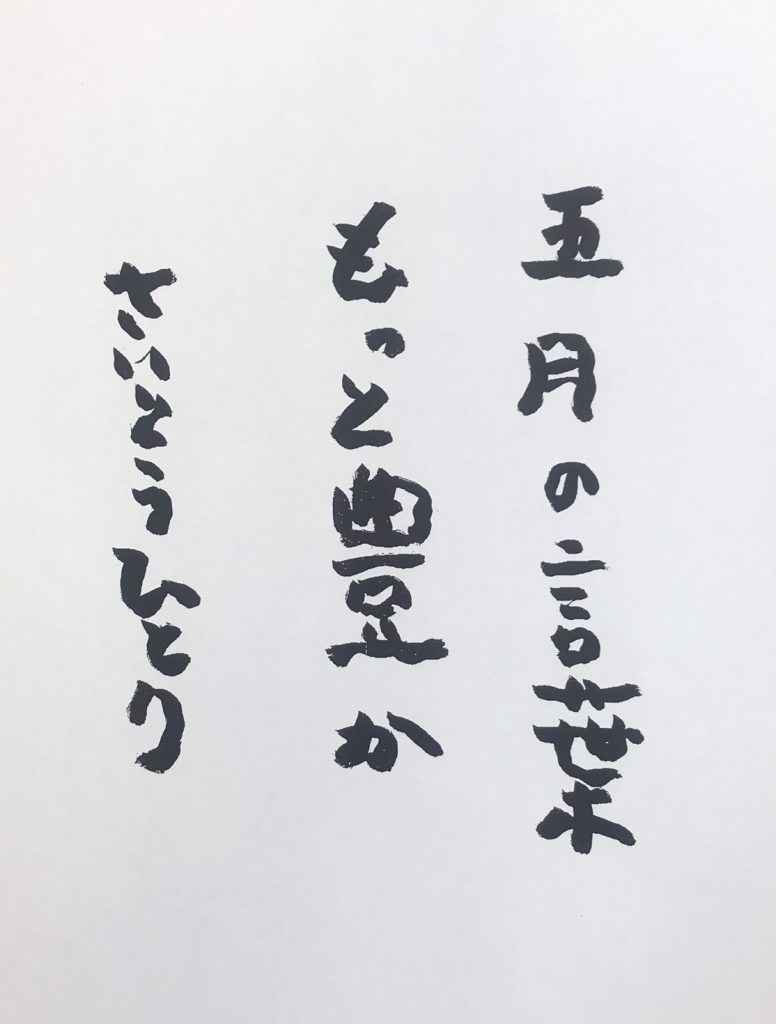 五月の言葉
もっと豊か
さいとうひとり